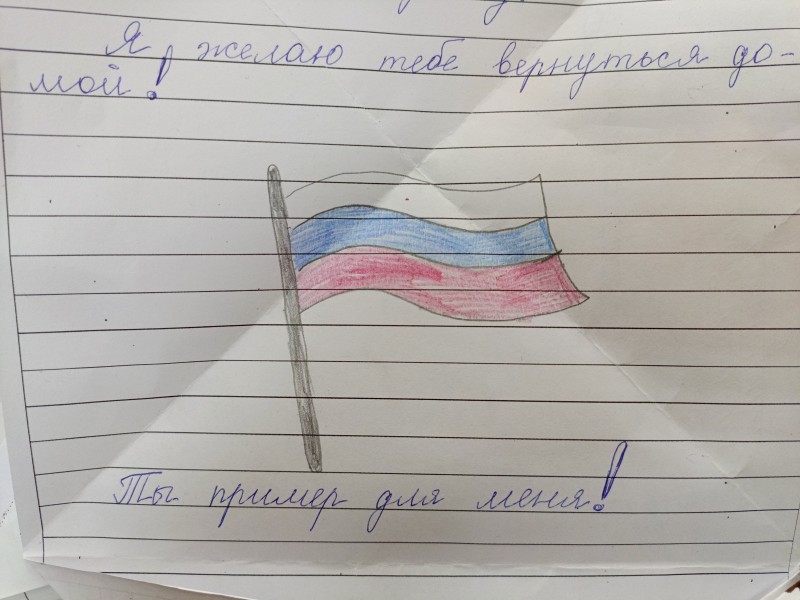 Я желаю тебе вернуться до-
мой!
Ты пример для меня!